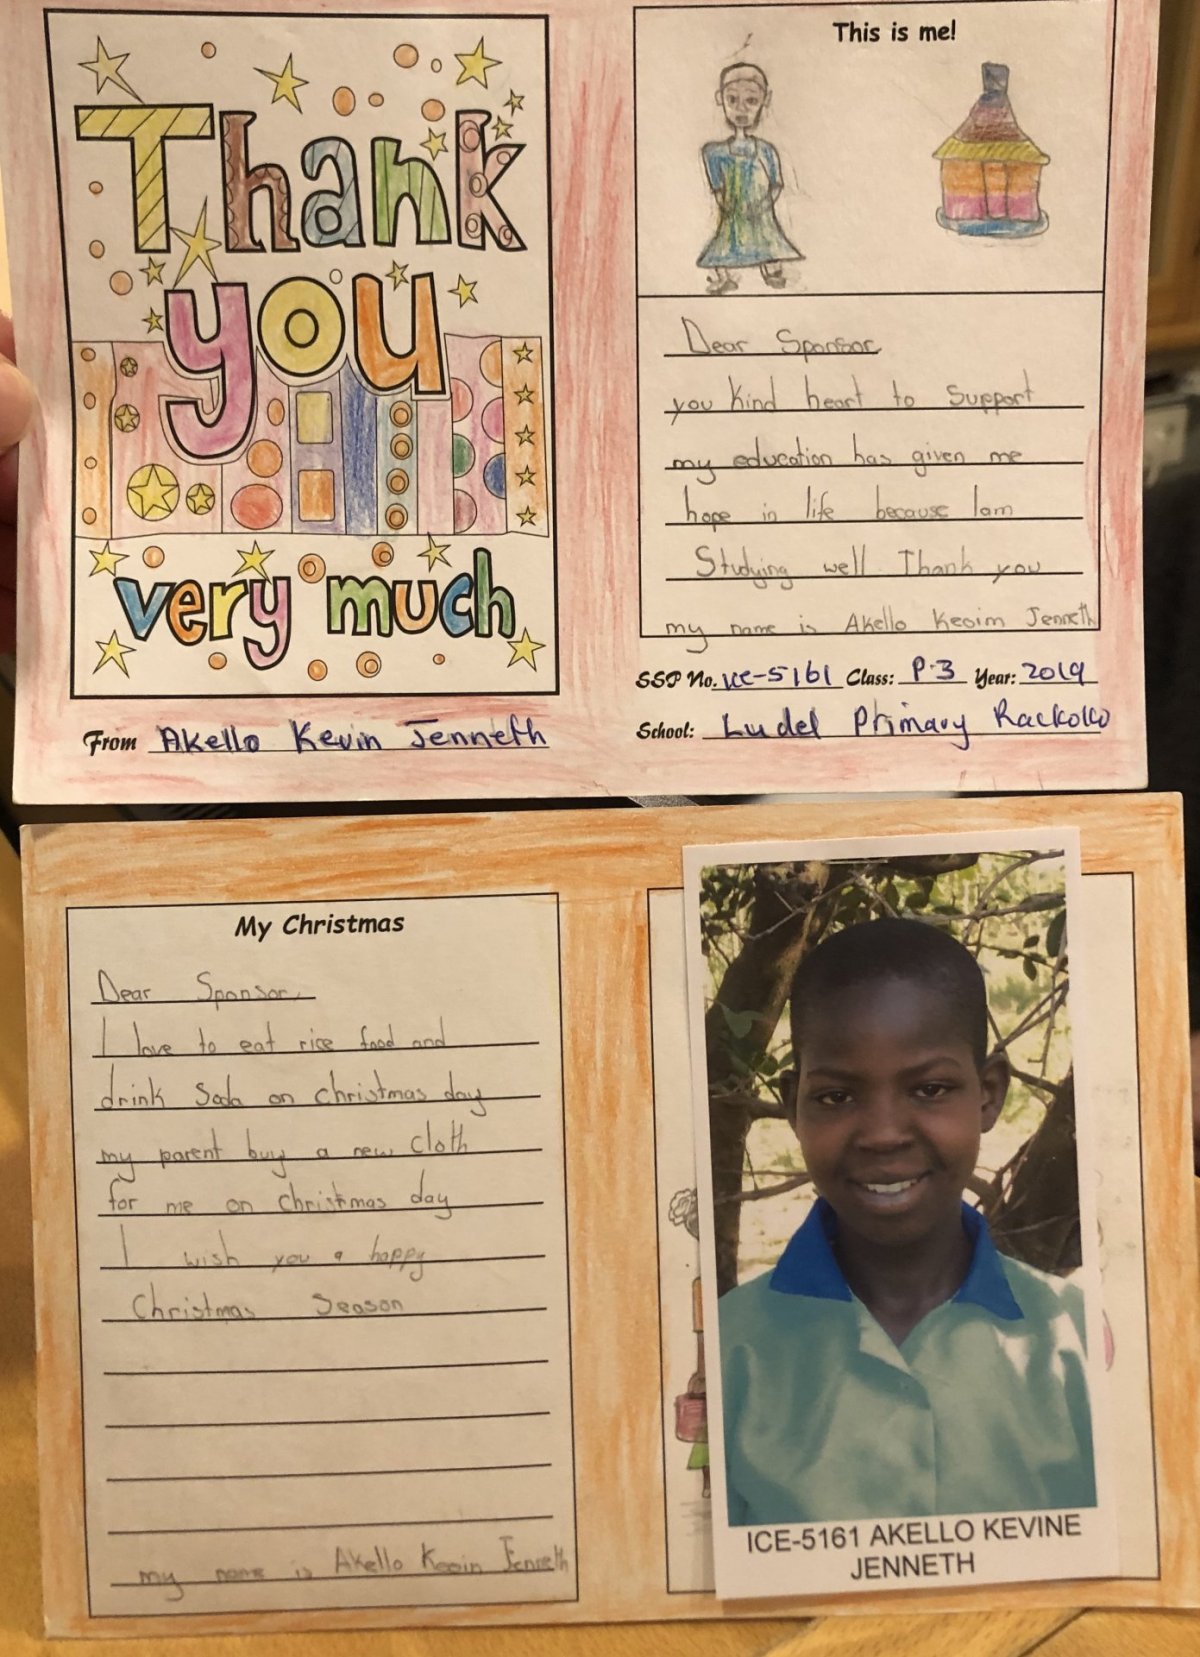 Thank
you
very much
From Akello Kevin Jenneth
This is me!
Dear Sponsor
you kind heart to support
my education has given me
hope in life because Iam
Studying well. Thank you
my name is Akello Kevin Jenneth
SSP No. ICE-5161 Class: P.3 Year: 2019
School: Ludel Primary Rackoko
My Christmas
Dear Sponsor,
I love to eat rice food and
drink Soda on christmas day
my parent buy a new cloth
for me on christmas day
I wish you a happy
Christmas Season
my name is Akello Kevin Jenneth
ICE-5161 AKELLO KEVINE
JENNETH